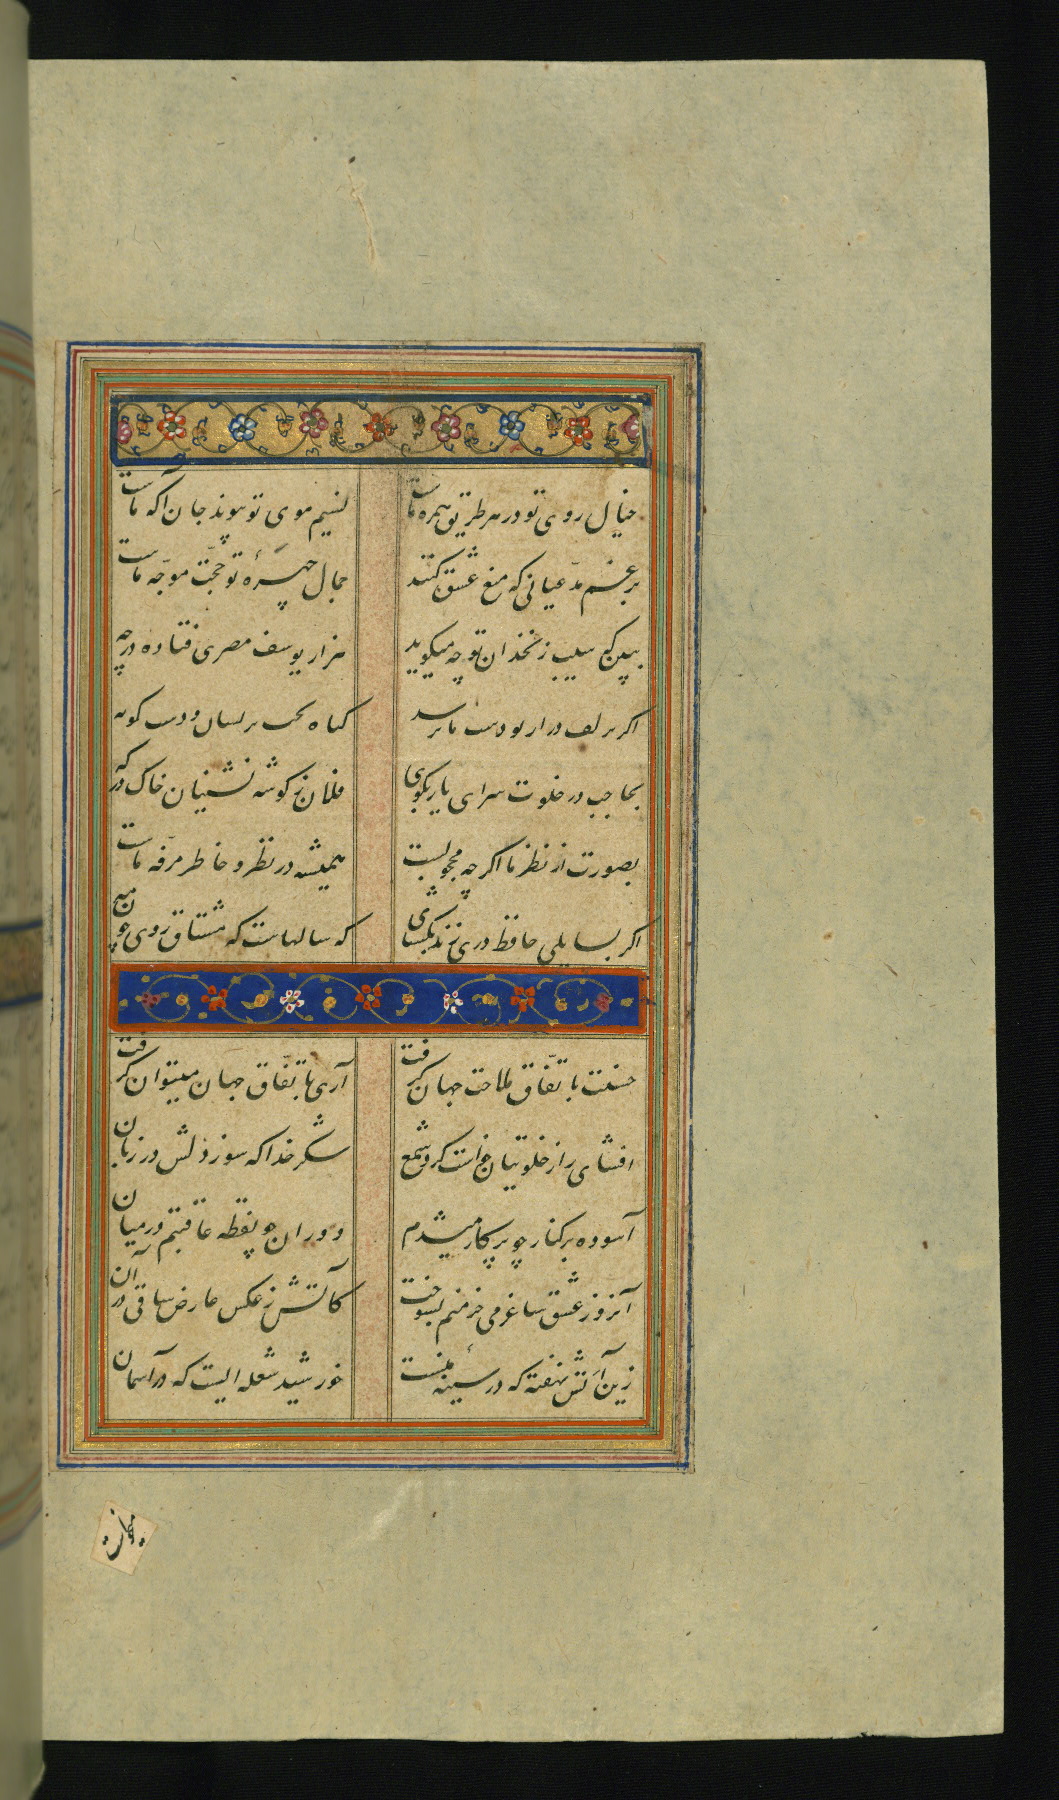 خیال روی تو در هر طریق همره ماست نسیم موی تو پیوند جان آکه ماست
برغم مدّعیانی که منع عشق کنند جمال چهرهٔ تو حجّت موجّه ماست
ببین که سیب زنخدان تو چه میکوید هزار یوسف مصری فتاده در چه
اکر بزلف دراز تو دست ما نرسد کناه بخت پریشان و دست کوته
بحاجب در خلوت سرای یار بکوی فلان ز کوشه نشینان خاک درکه
بصورت از نظر ما اکر چه محجوبست همیشه در نظر و خاطر مرفّه ماست
اکر بسایلی حافظ دری زند بکشای که سالهاست که مشتاق روی چو
حسنت باتّفاق ملاحت جهان کرفت آری باتّفاق جهان میتوان کرفت
افشای راز خلوتیان خواست کرد شمع شکر خدا که سوز دلش در زبان
آسوده بر کنار چو پرکار میشدم دوران چو نقطه عاقبتم در میان
آنروز عشق ساغر می خرمنم بسوخت کاتش ز عکس عارض ساقی در آن
زین آتش نهفته که در سینهٔ منست خورشید شعله ایست که در آسمان